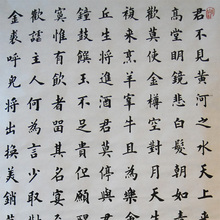 君不見黃河之水天上
高堂明鏡悲白髮朝如
歡莫使金樽空對月天生
復來烹羊宰牛且為樂
丘生將進酒君莫停與君
鐘鼓饌玉不
寞惟有飲者留其名
歡謔主人何為言少
金裘呼兒將出換美